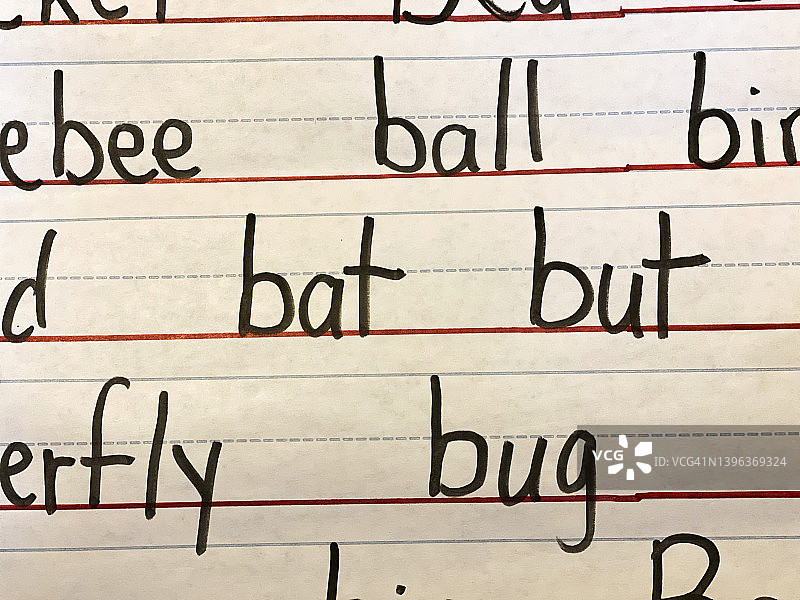 ebee ball bir
d bat but
erfly bug
VCG ID: VCG41N1396369324